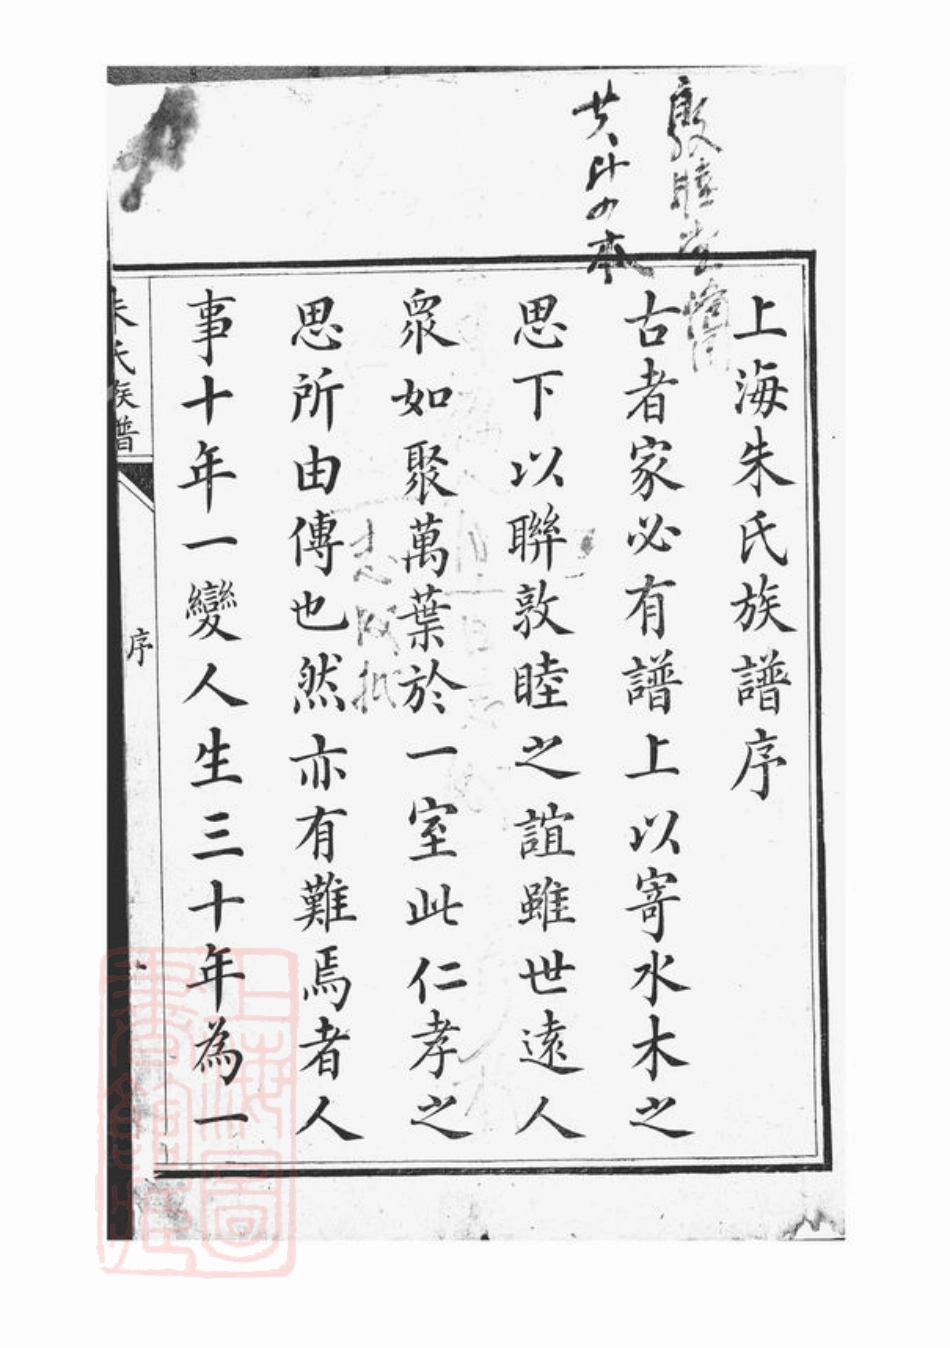 上海朱氏族譜序
古者家必有譜上以寄水木之
思下以聯敦睦之誼雖世遠人
衆如聚萬葉於一室此仁孝之
思所由傳也然亦有難焉者人
事十年一變人生三十年為一
朱氏族譜
序
一
敦睦堂
共計四本
上海圖書館藏